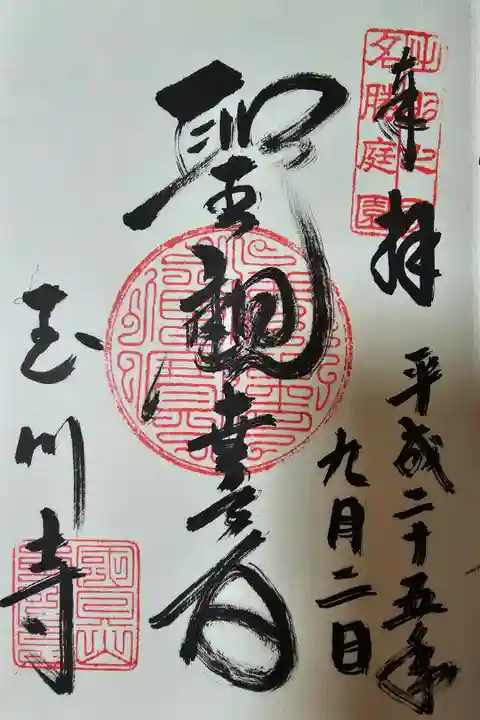 奉拝
名勝庭園
平成二十五年
九月二日
聖観世音
玉川寺